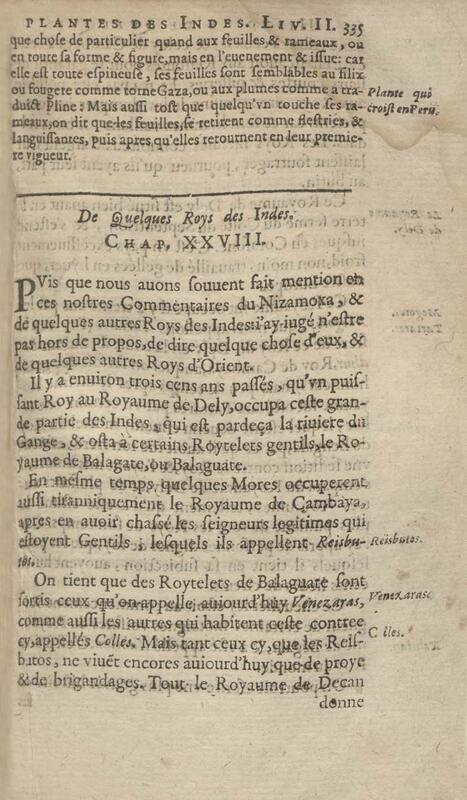 PLANTES DES INDES. LIV. II. 335
que chose de particulier quand aux feuilles, & rameaux, ou
en toute sa forme & figure, mais en l'euenement & issue: car
elle est toute espineuse, ses feuilles sont semblables au filix
ou fougere comme torne Gaza, ou aux plumes comme a tra-
duict Pline: Mais aussi tost que quelqu'vn touche ses ra-
Plante qui
croist en Peru.
meaux, on dit que les feuilles, se retirent comme flestries, &
languissantes, puis apres qu'elles retournent en leur premie-
re vigueur.
De Quelques Roys des Indes.
CHAP. XXVIII.
PVis que nous auons souuent fait mention en
ces nostres Commentaires du Nizamoxa, &
de quelques autres Roys des Indes: i'ay iugé n'estre
pas hors de propos, de dire quelque chose d'eux, &
de quelques autres Roys d'Orient.
Il y a enuiron trois cens ans passés, qu'vn puis-
sant Roy au Royaume de Dely, occupa ceste gran-
de partie des Indes, qui est pardeça la riuiere du
Gange, & osta à certains Roytelets gentils, le Ro-
yaume de Balagate, ou Balaguate.
En mesme temps quelques Mores occuperent
aussi tiranniquement le Royaume de Cambaya,
apres en auoir chassé les seigneurs legitimes qui
estoyent Gentils, lesquels ils appellent Reisbu-
tos.
Reisbutos.
On tient que des Roytelets de Balaguate sont
sortis ceux qu'on appelle aujourd'huy Venezaras,
Venezaras.
comme aussi les autres qui habitent ceste contree
cy, appellés Colles. Mais tant ceux cy, que les Reis-
Colles.
butos, ne viuēt encores aujourd'huy que de proye
& de brigandages. Tout le Royaume de Decan
donne